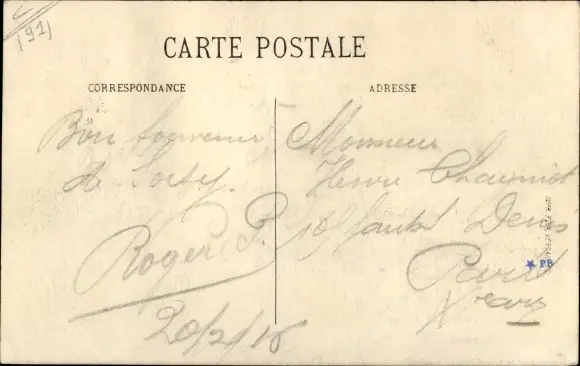 (91)
CARTE POSTALE
CORRESPONDANCE
ADRESSE
Bon Souvenir
de Soisy.
Roger P.
20/2/18
Monsieur
Henri Chagniot
Denis
Paris
PB